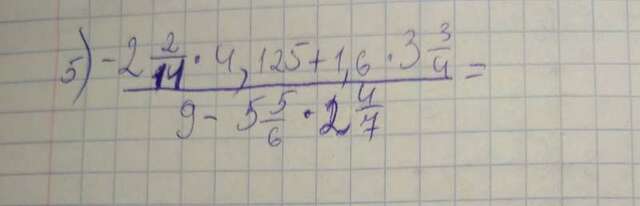 5) -2 2/11 · 4,125+1,6 · 3 3/4 =
9 - 5 5/6 · 2 4/7